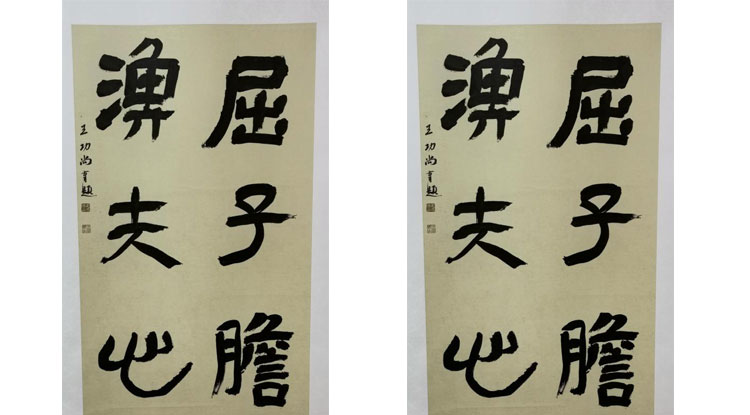 屈子膽
漁夫心
王功尚 題
屈子膽
漁夫心
王功尚 題